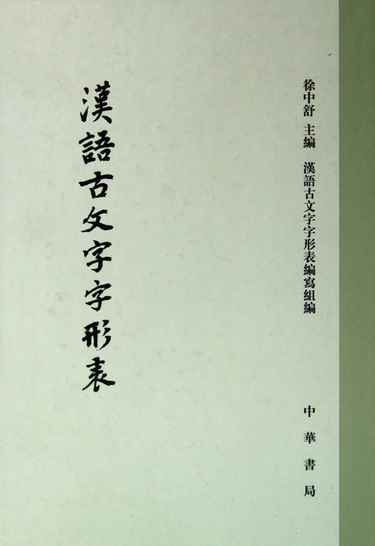 徐中舒 主編 漢語古文字字形表編寫組編
漢語古文字字形表
中華書局